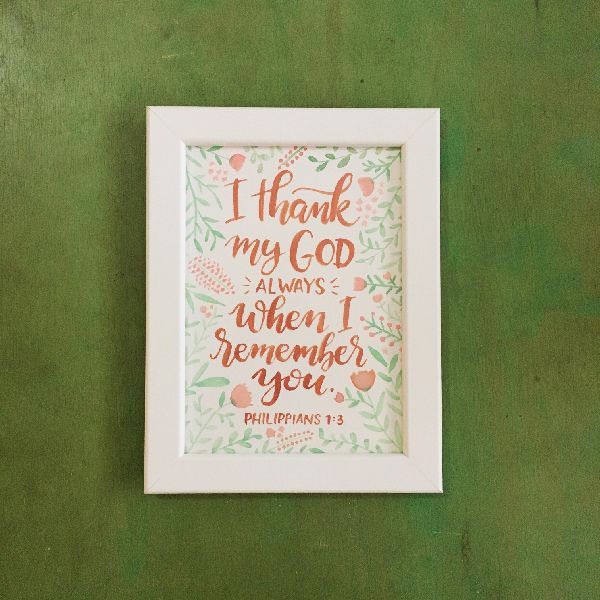 I thank
my GOD
ALWAYS
when I
remember
you.
PHILIPPIANS 1:3